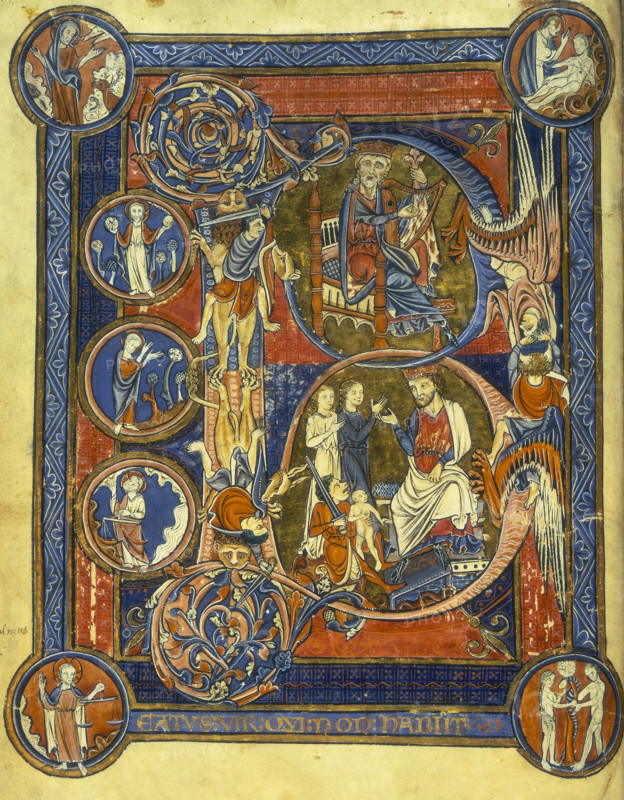 B
EATVS:VIR:QVI:NON:HABIIT